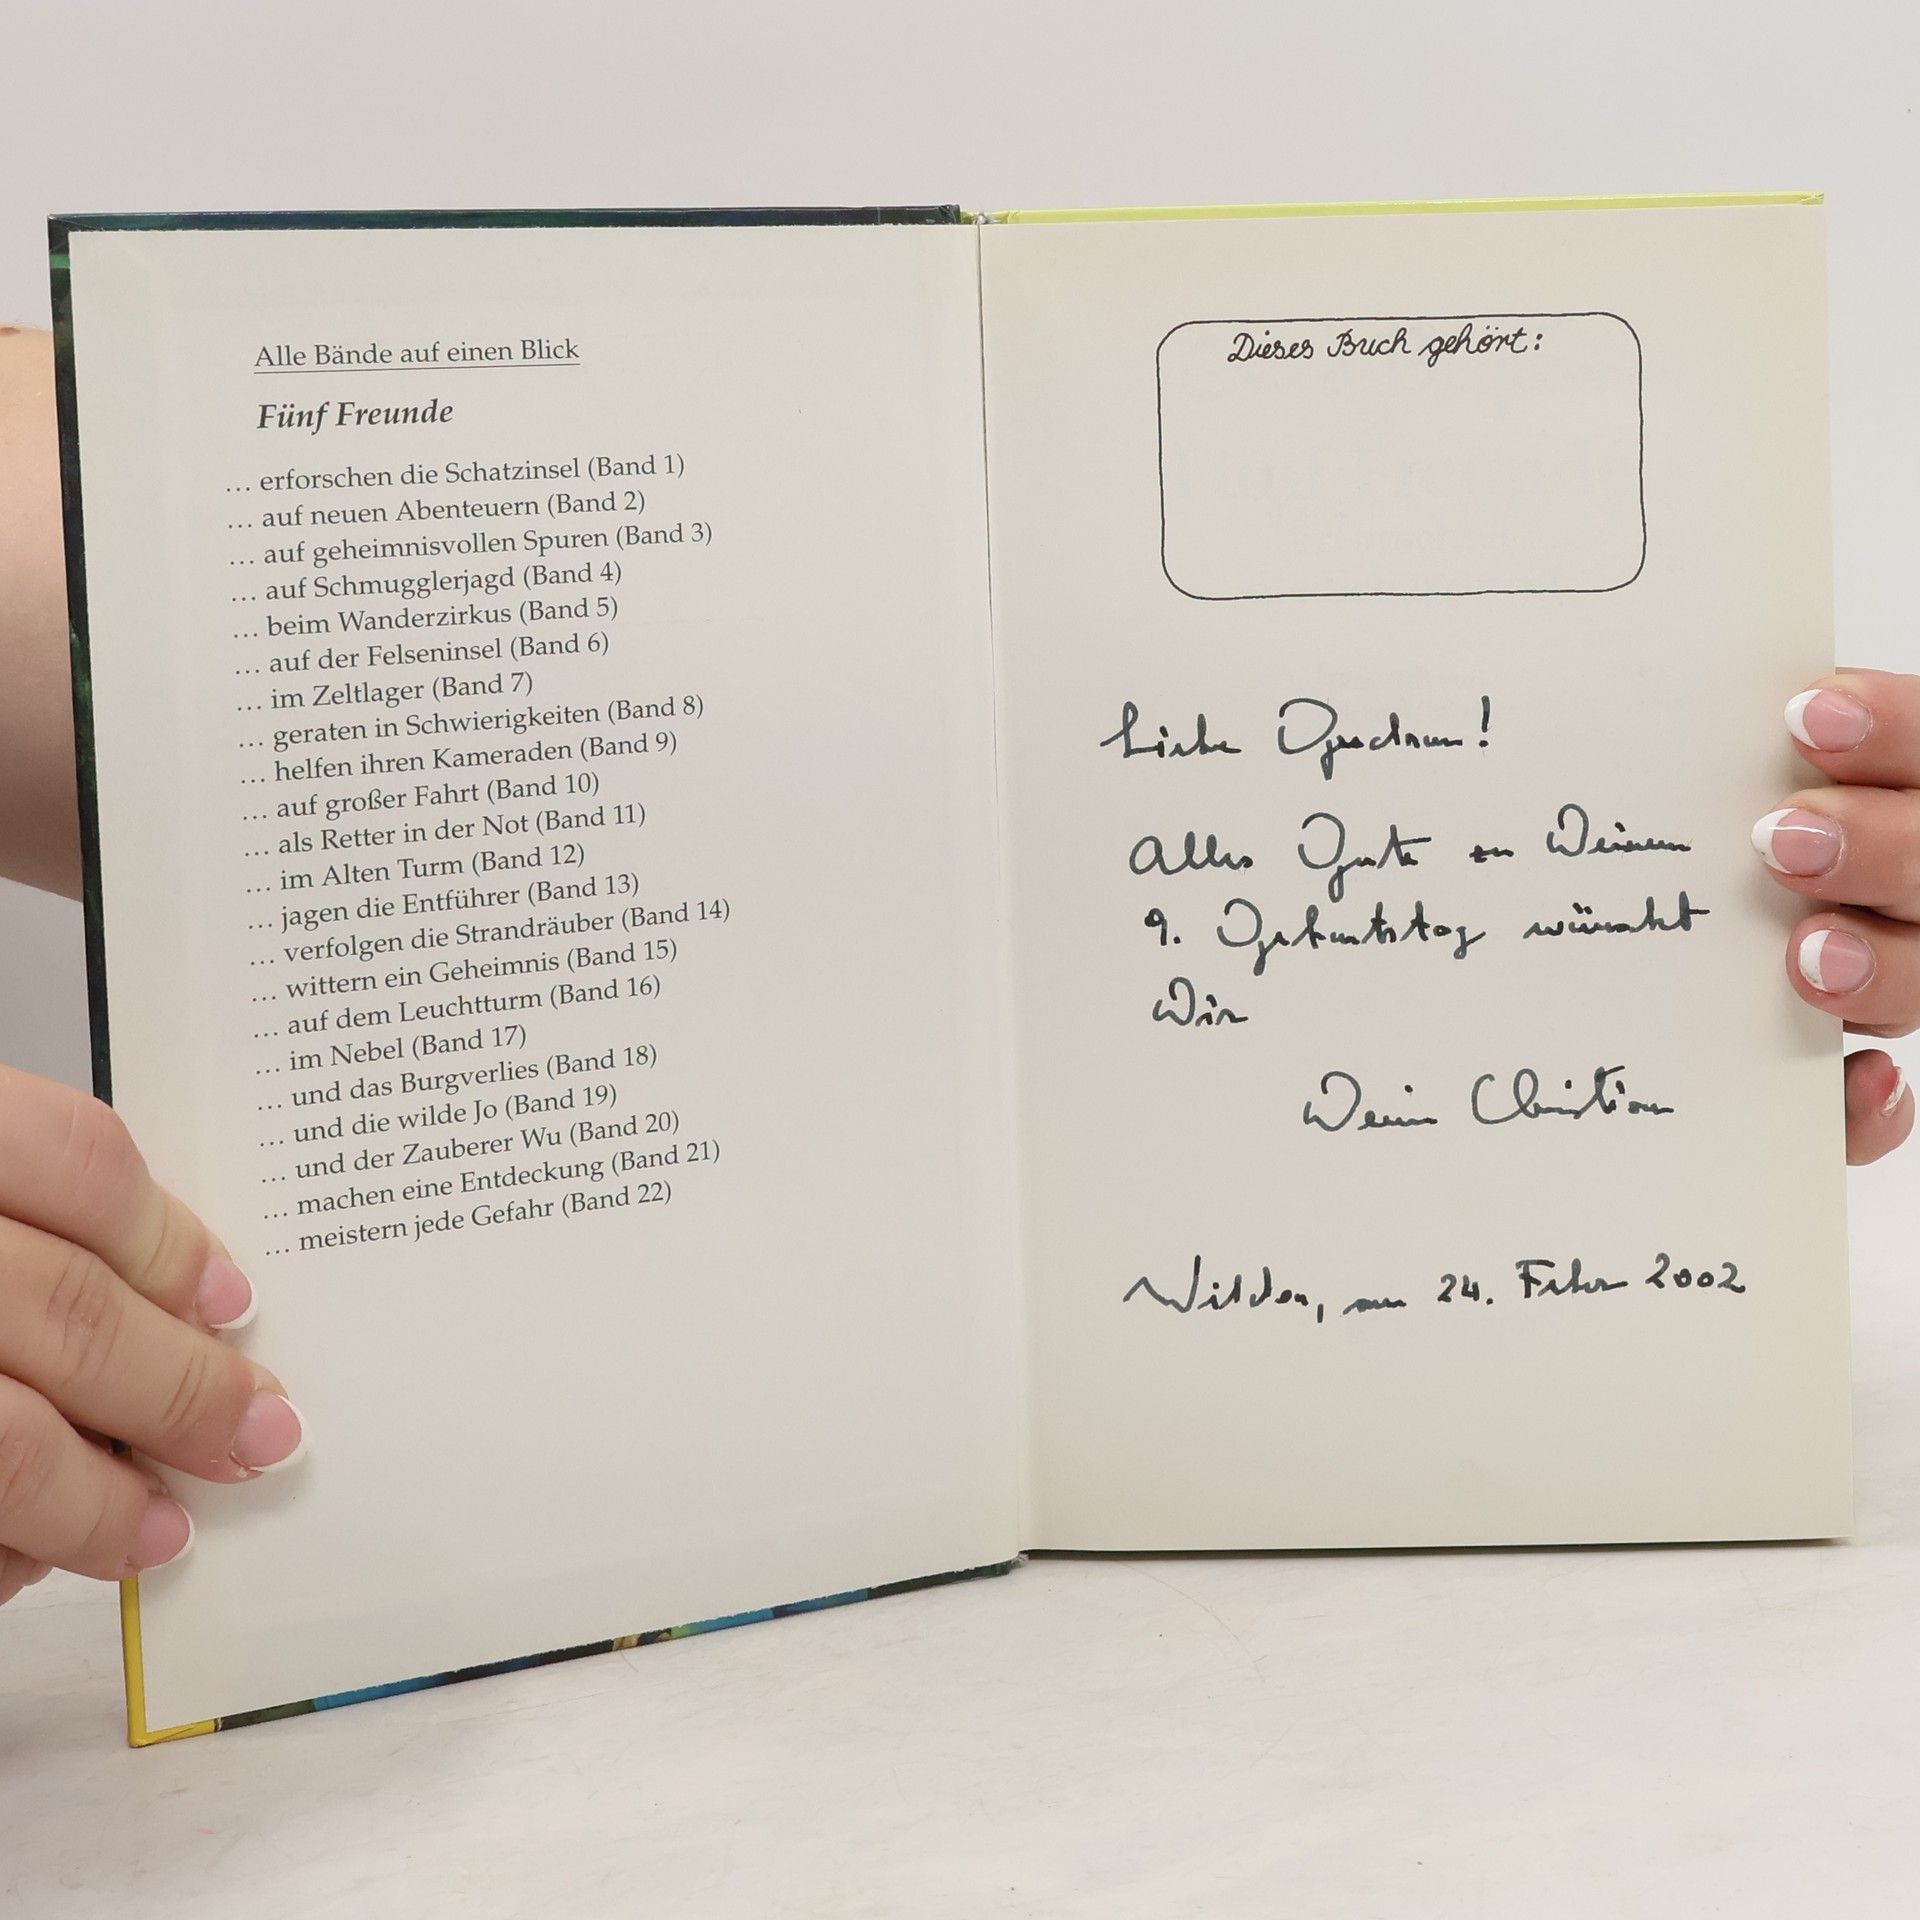 Alle Bände auf einen Blick
Fünf Freunde
... erforschen die Schatzinsel (Band 1)
... auf neuen Abenteuern (Band 2)
... auf geheimnisvollen Spuren (Band 3)
... auf Schmugglerjagd (Band 4)
... beim Wanderzirkus (Band 5)
... auf der Felseninsel (Band 6)
... im Zeltlager (Band 7)
... geraten in Schwierigkeiten (Band 8)
... helfen ihren Kameraden (Band 9)
... auf großer Fahrt (Band 10)
... als Retter in der Not (Band 11)
... im Alten Turm (Band 12)
... jagen die Entführer (Band 13)
... verfolgen die Strandräuber (Band 14)
... wittern ein Geheimnis (Band 15)
... auf dem Leuchtturm (Band 16)
... im Nebel (Band 17)
... und das Burgverlies (Band 18)
... und die wilde Jo (Band 19)
... und der Zauberer Wu (Band 20)
... machen eine Entdeckung (Band 21)
... meistern jede Gefahr (Band 22)
Dieses Buch gehört:
Liebe !
Alles Gute zu Deinem
9. Geburtstag wünscht
Dir
Dein Christian
am 24. Feber 2002